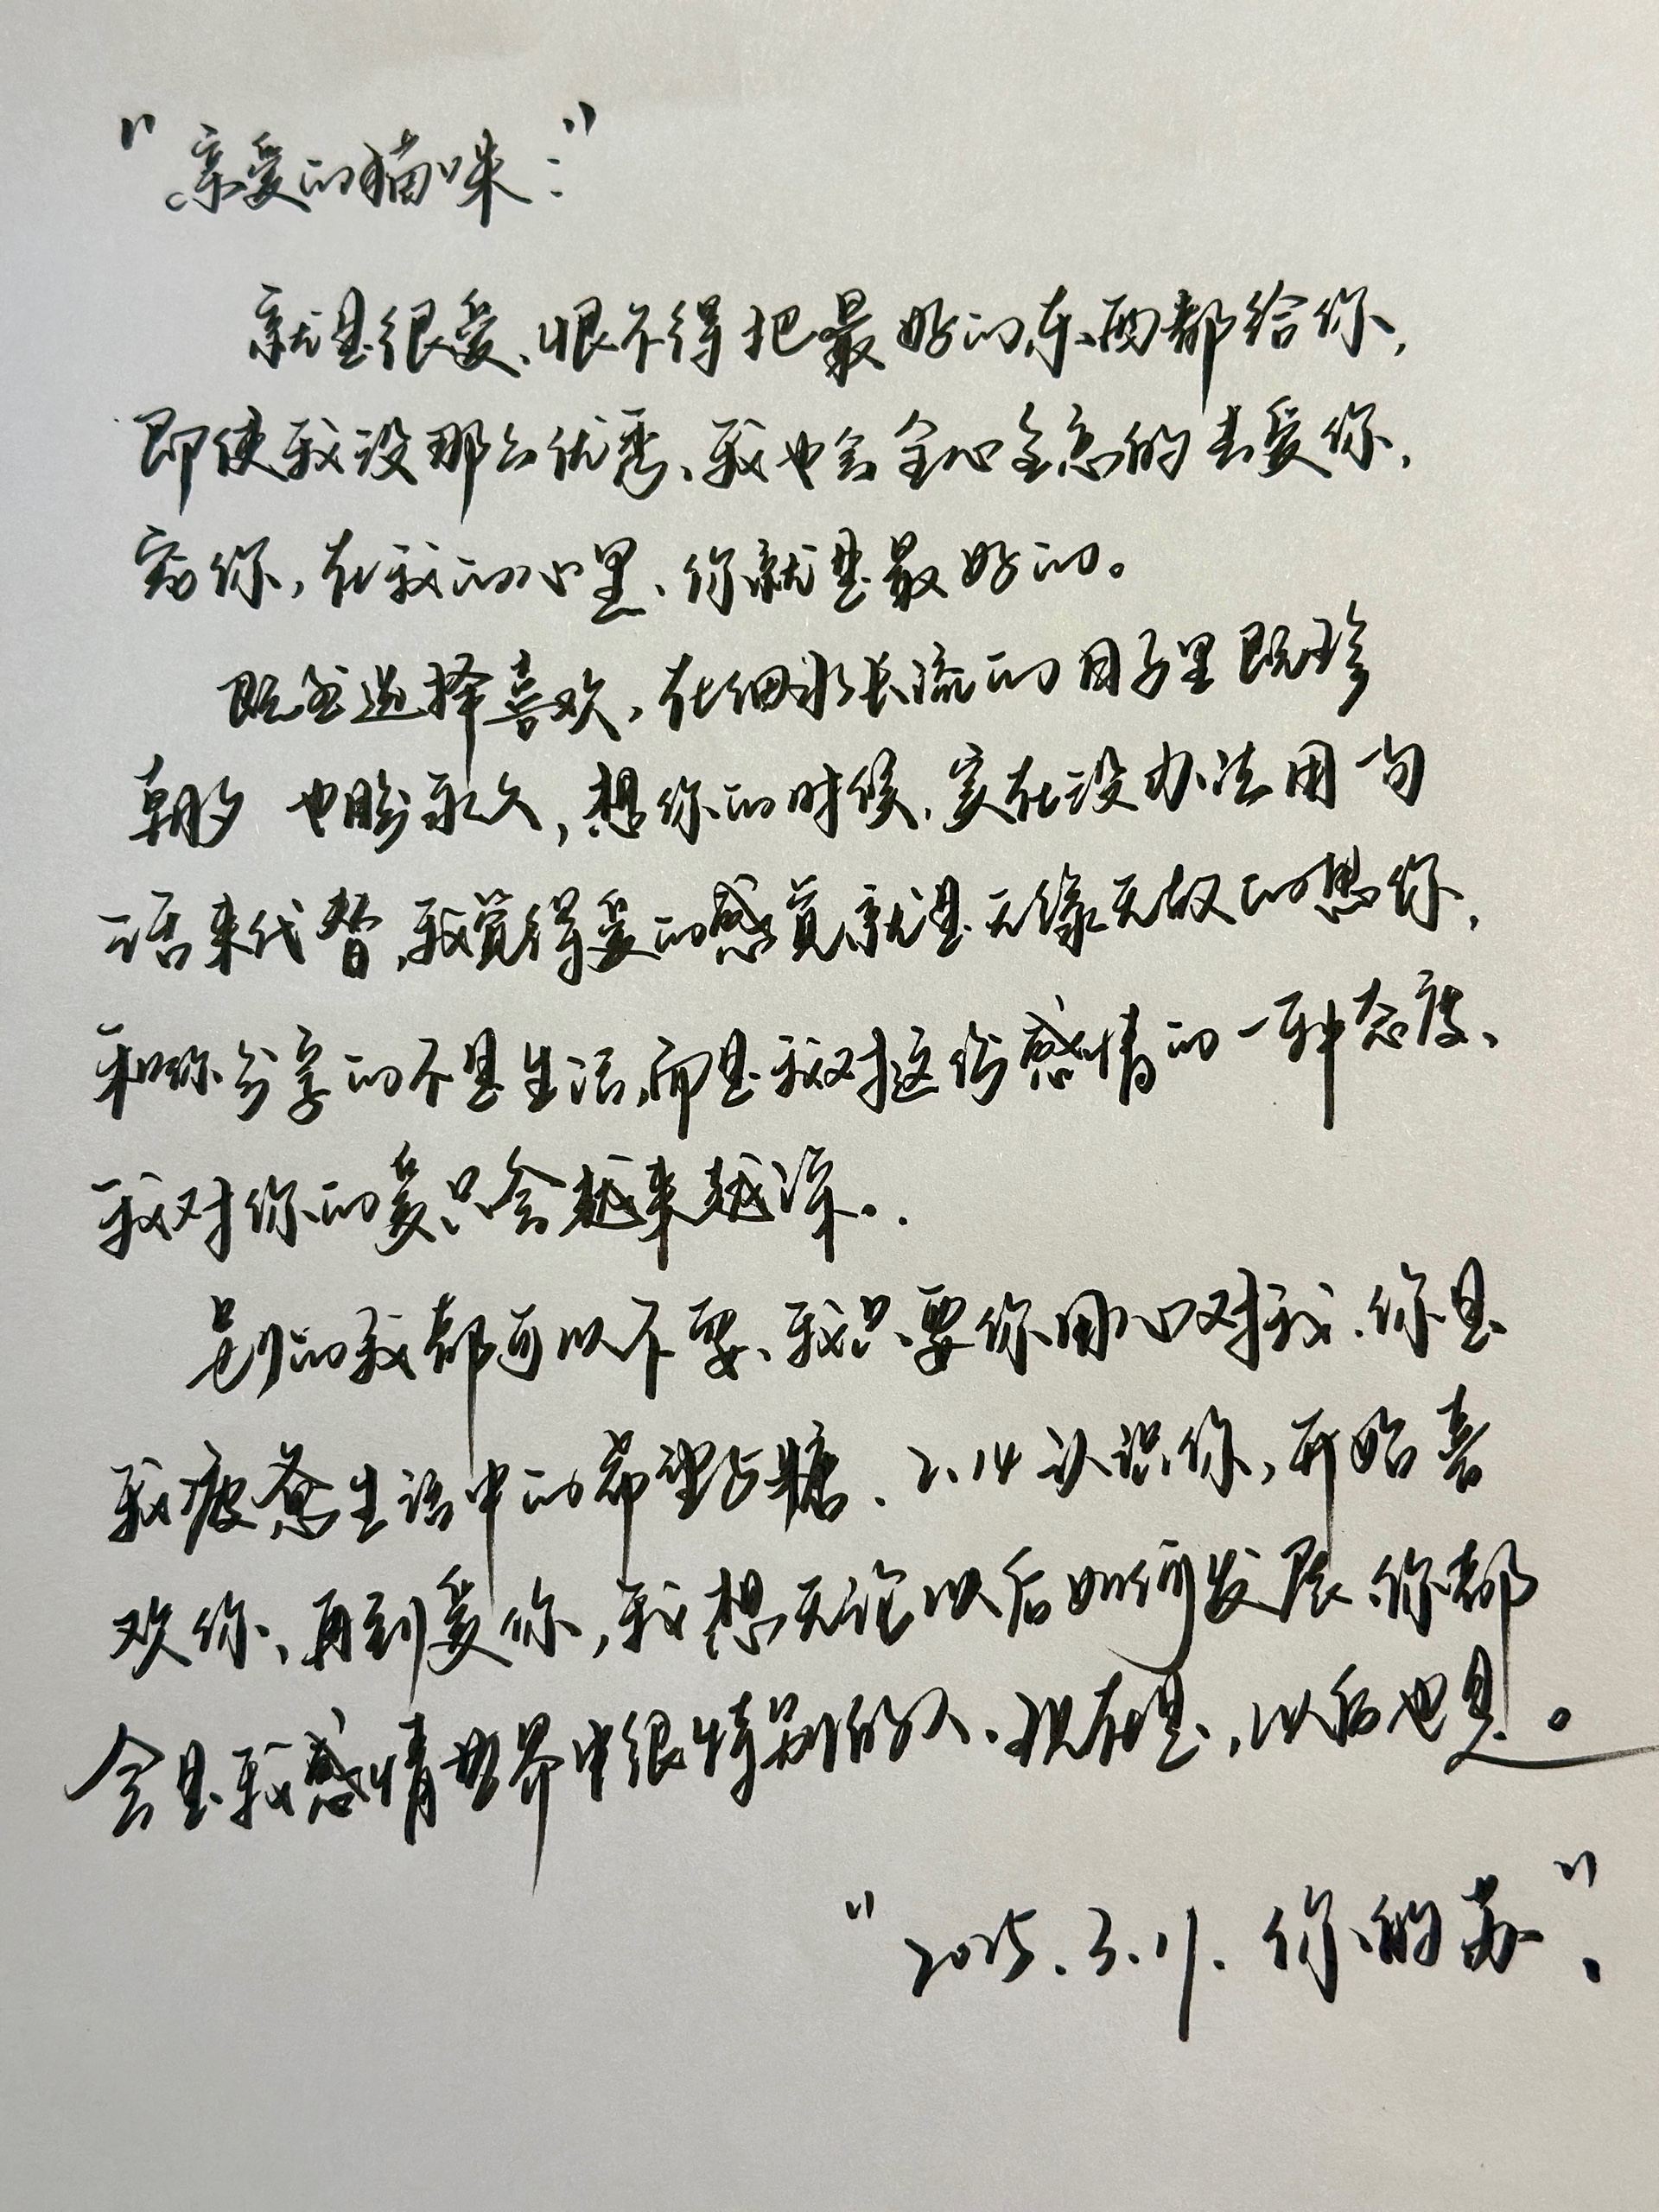 "亲爱的猫咪："
就是很爱、恨不得把最好的东西都给你,
即使我没那么优秀、我也会全心全意的去爱你,
宠你,在我的心里、你就是最好的。
既然选择喜欢,在细水长流的日子里既珍
朝夕 也盼永久,想你的时候,实在没办法用一句
话来代替,我觉得爱的感觉就是无缘无故的想你,
和你分享的不是生活,而是我对这份感情的一种态度、
我对你的爱只会越来越深。.
别的我都可以不要、我只要你用心对我.你是
我疲惫生活中的希望与糖、2.14认识你,开始喜
欢你、再到爱你,我想无论以后如何发展、你都
会是我感情世界中很特别的人、现在是,以后也是。
"2025.3.11.你的苏".